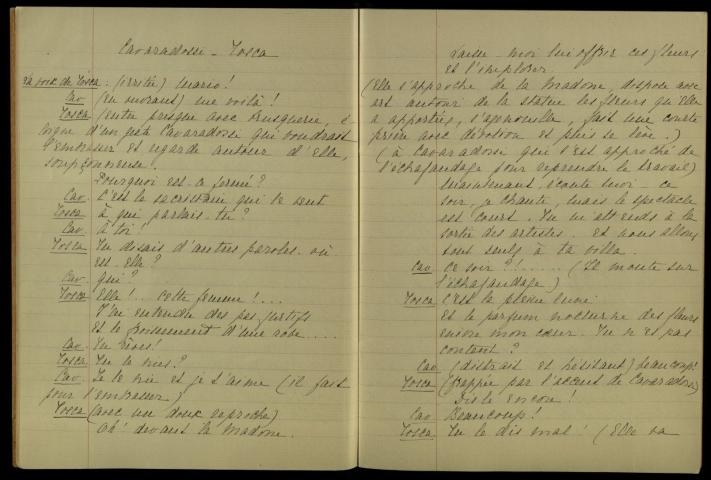 Cavaradossi - Tosca
La voix de Tosca: (irritée) Mario!
Cav (en mo rant) me voilà!
Tosca (entre presque avec brusquerie, é-
loigne d'un geste Cavaradossi qui voudrait
l'embrasser et regarde autour d'elle,
soupçonneuse.
Pourquoi est-ce fermé?
Cav. C'est le sacristain qui le veut
Tosca à qui parlais-tu?
Cav. à toi!
Tosca Tu disais d'autres paroles. où
est-elle?
Cav. qui?
Tosca Elle!.. cette femme!...
J'ai entendu des pas furtifs
et le froissement d'une robe.....
Cav. Tu rêves!
Tosca Tu le nies?
Cav. Je le nie et je t'aime (il fait
pour l'embrasser)
Tosca (avec un doux reproche)
Oh! devant la Madone.
Laisse-moi lui offrir ces fleurs
et l'implorer
(Elle s'approche de la Madone, dispose avec
art autour de la statue les fleurs qu'elle
a apportées, s'agenouille, fait une courte
prière avec dévotion et puis se lève.)
(à Cavaradossi qui s'est approché de
l'échafaudage pour reprendre le travail)
Maintenant, écoute moi - ce
soir, je chante, mais le spectacle
est court. Tu m'attends à la
sortie des artistes. et nous allons
tout seuls à ta villa.
Cav Ce soir?!...... (Il monte sur
l'échafaudage)
Tosca C'est la pleine lune.
Et le parfum nocturne des fleurs
enivre mon cœur. Tu n'es pas
content?
Cav (distrait et hésitant) beaucoup!
Tosca (frappée par l'accent de Cavaradossi)
Dis le encore!
Cav Beaucoup!
Tosca Tu le dis mal! (Elle va